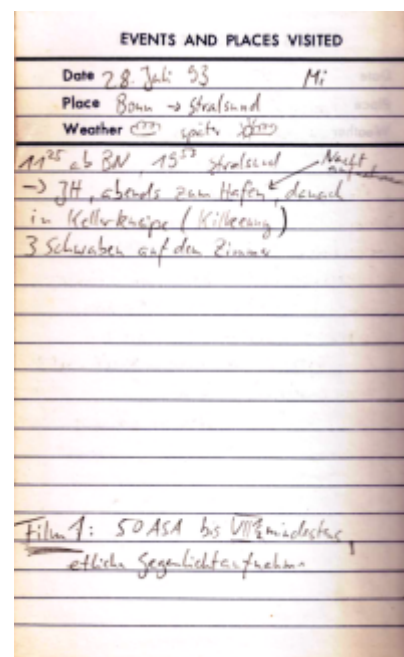 EVENTS AND PLACES VISITED
Date 28. Juli 93 Mi
Place Bonn → Stralsund
Weather später
11²⁵ ab BN, 19⁵³ Stralsund
Nacht
→ JH, abends zum Hafen, danach
in Kellerkneipe (Kilkenny)
3 Schwaben auf dem Zimmer
Film 1: 50 ASA bis mindestens,
etliche Gegenlichtaufnahmen